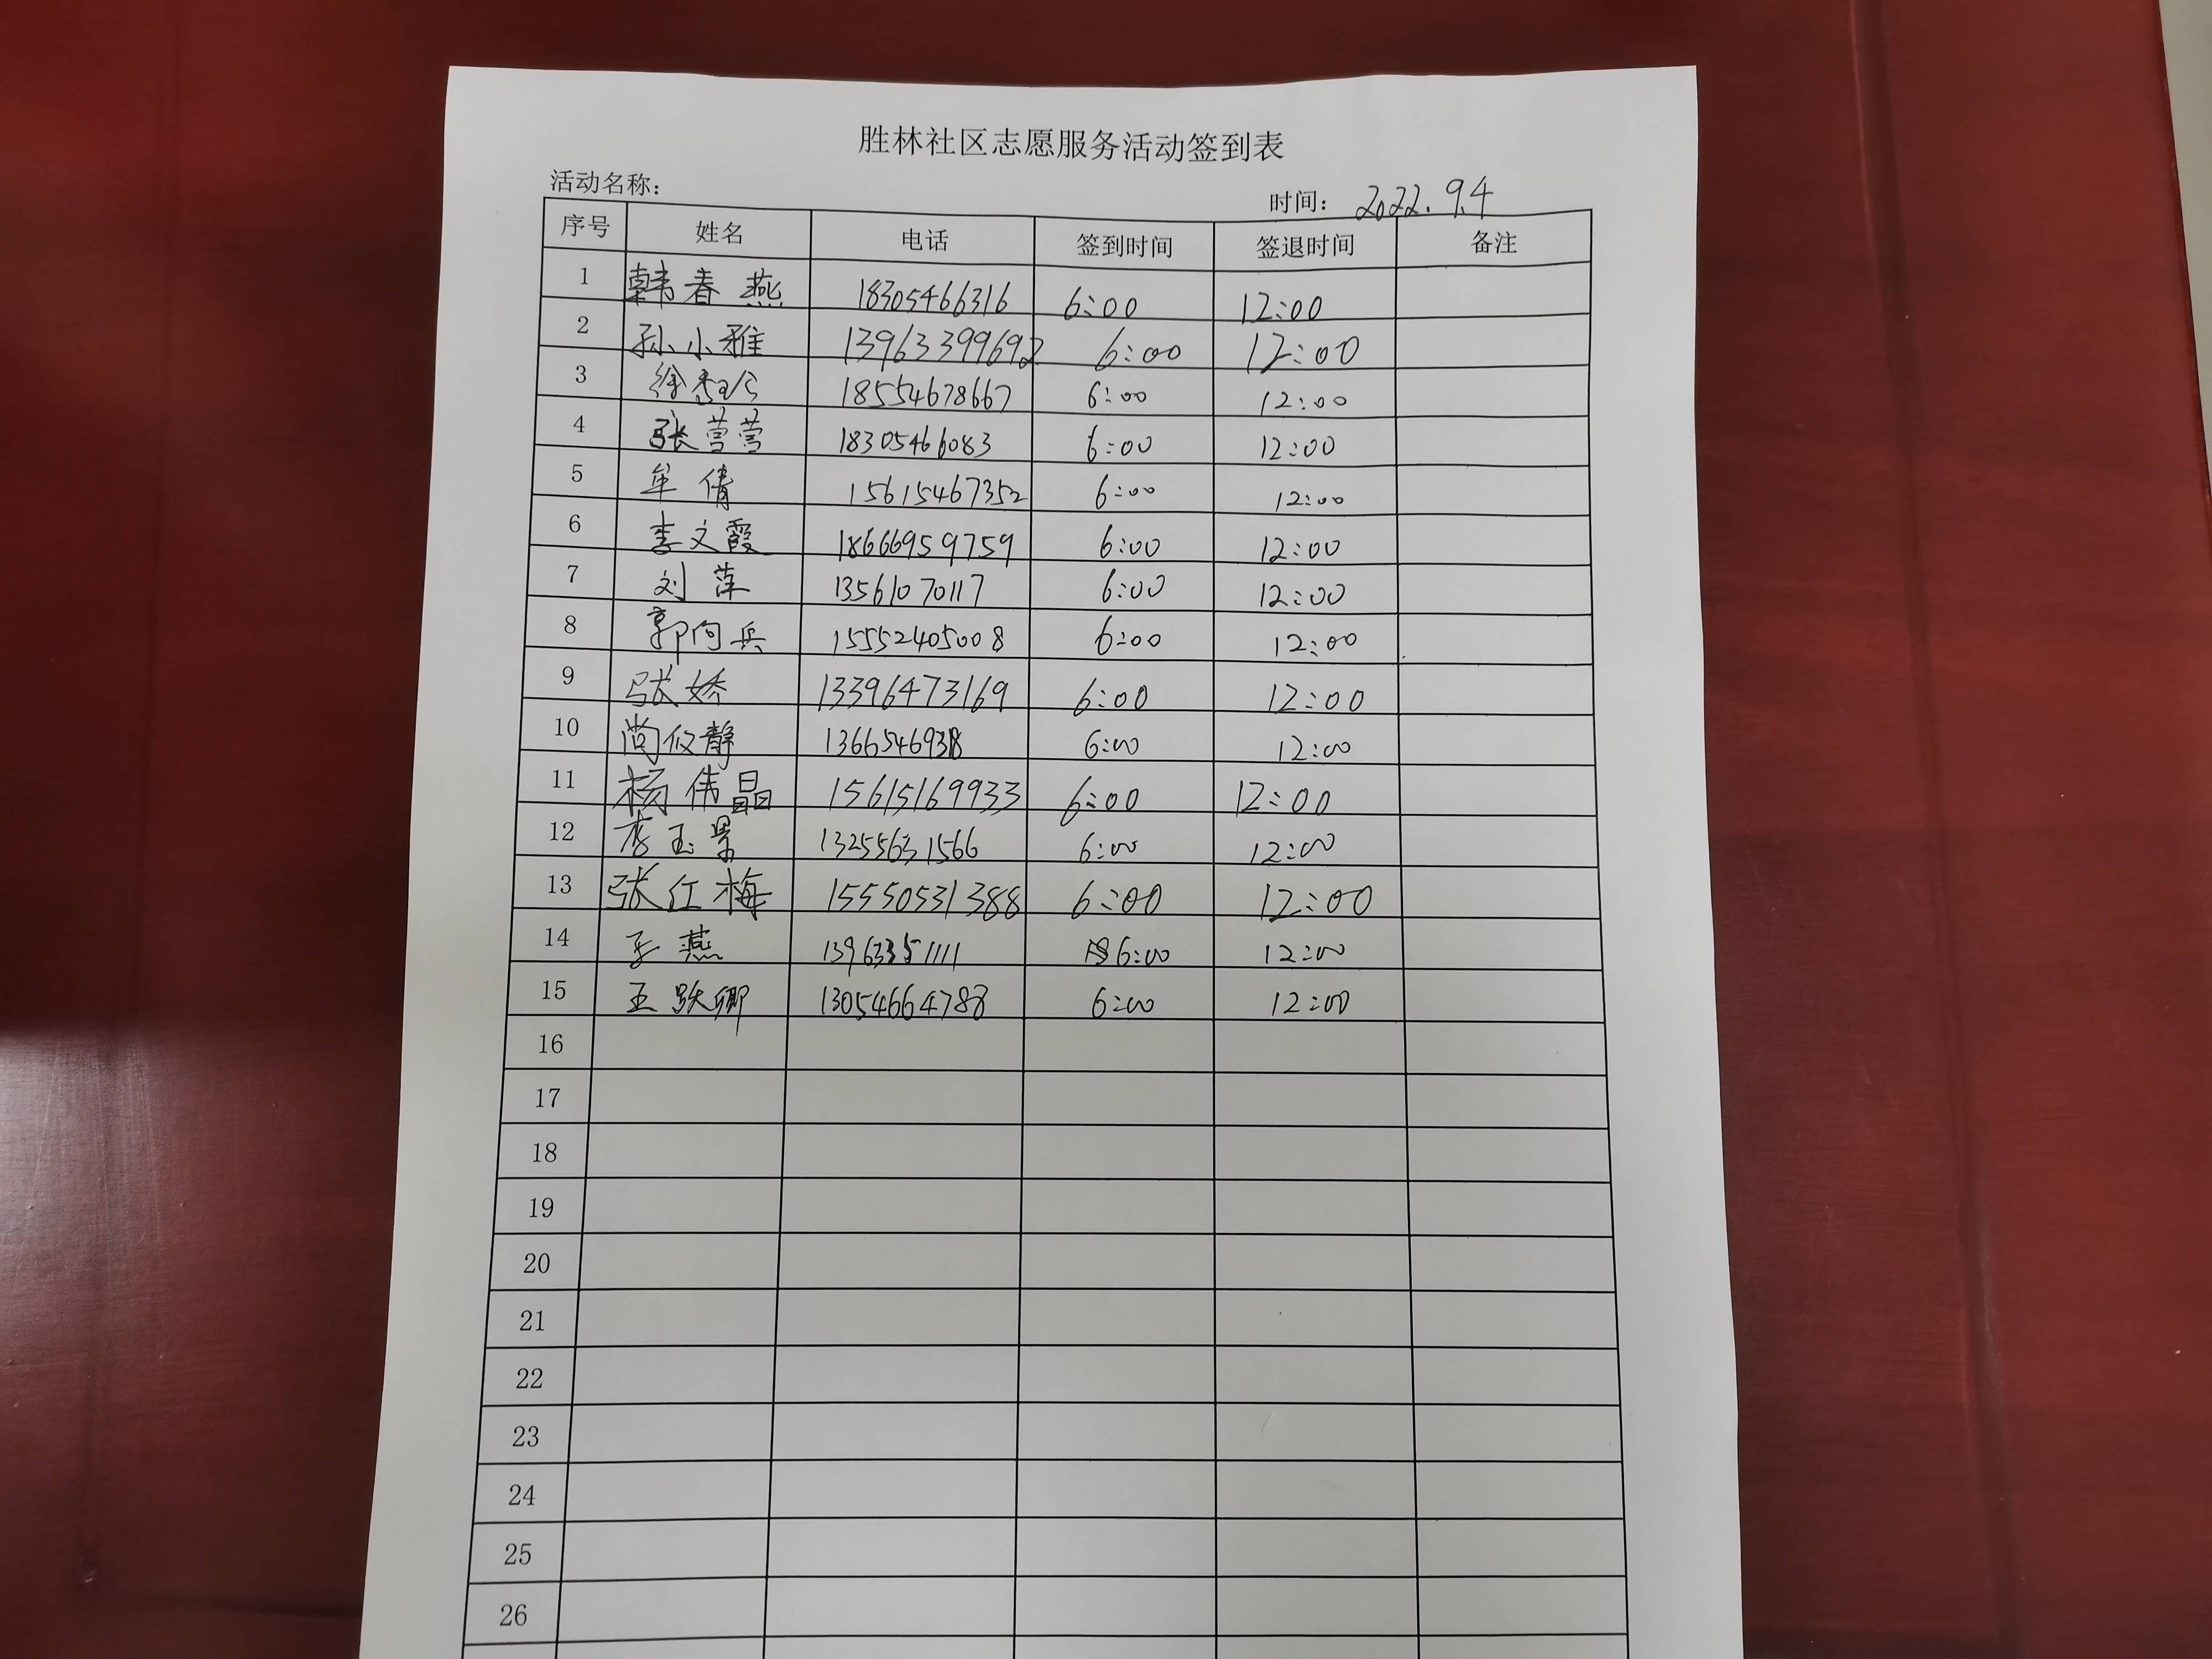 胜林社区志愿服务活动签到表
活动名称： 时间： 2022.9.4
序号 姓名 电话 签到时间 签退时间 备注
1 韩春燕 18305466316 6:00 12:00
2 孙小雅 13963399692 6:00 12:00
3 徐 18554678667 6:00 12:00
4 张营营 18305466083 6:00 12:00
5 牟倩 15615467352 6:00 12:00
6 李文霞 18666959759 6:00 12:00
7 刘萍 13561070117 6:00 12:00
8 郭向兵 15552405008 6:00 12:00
9 张娇 13396473169 6:00 12:00
10 尚俊静 6:00 12:00
11 杨伟晶 15615169933 6:00 12:00
12 李玉景 13255631566 6:00 12:00
13 张红梅 15550531388 6:00 12:00
14 王燕 13963351111 6:00 12:00
15 王跃卿 13054664788 6:00 12:00
16
17
18
19
20
21
22
23
24
25
26